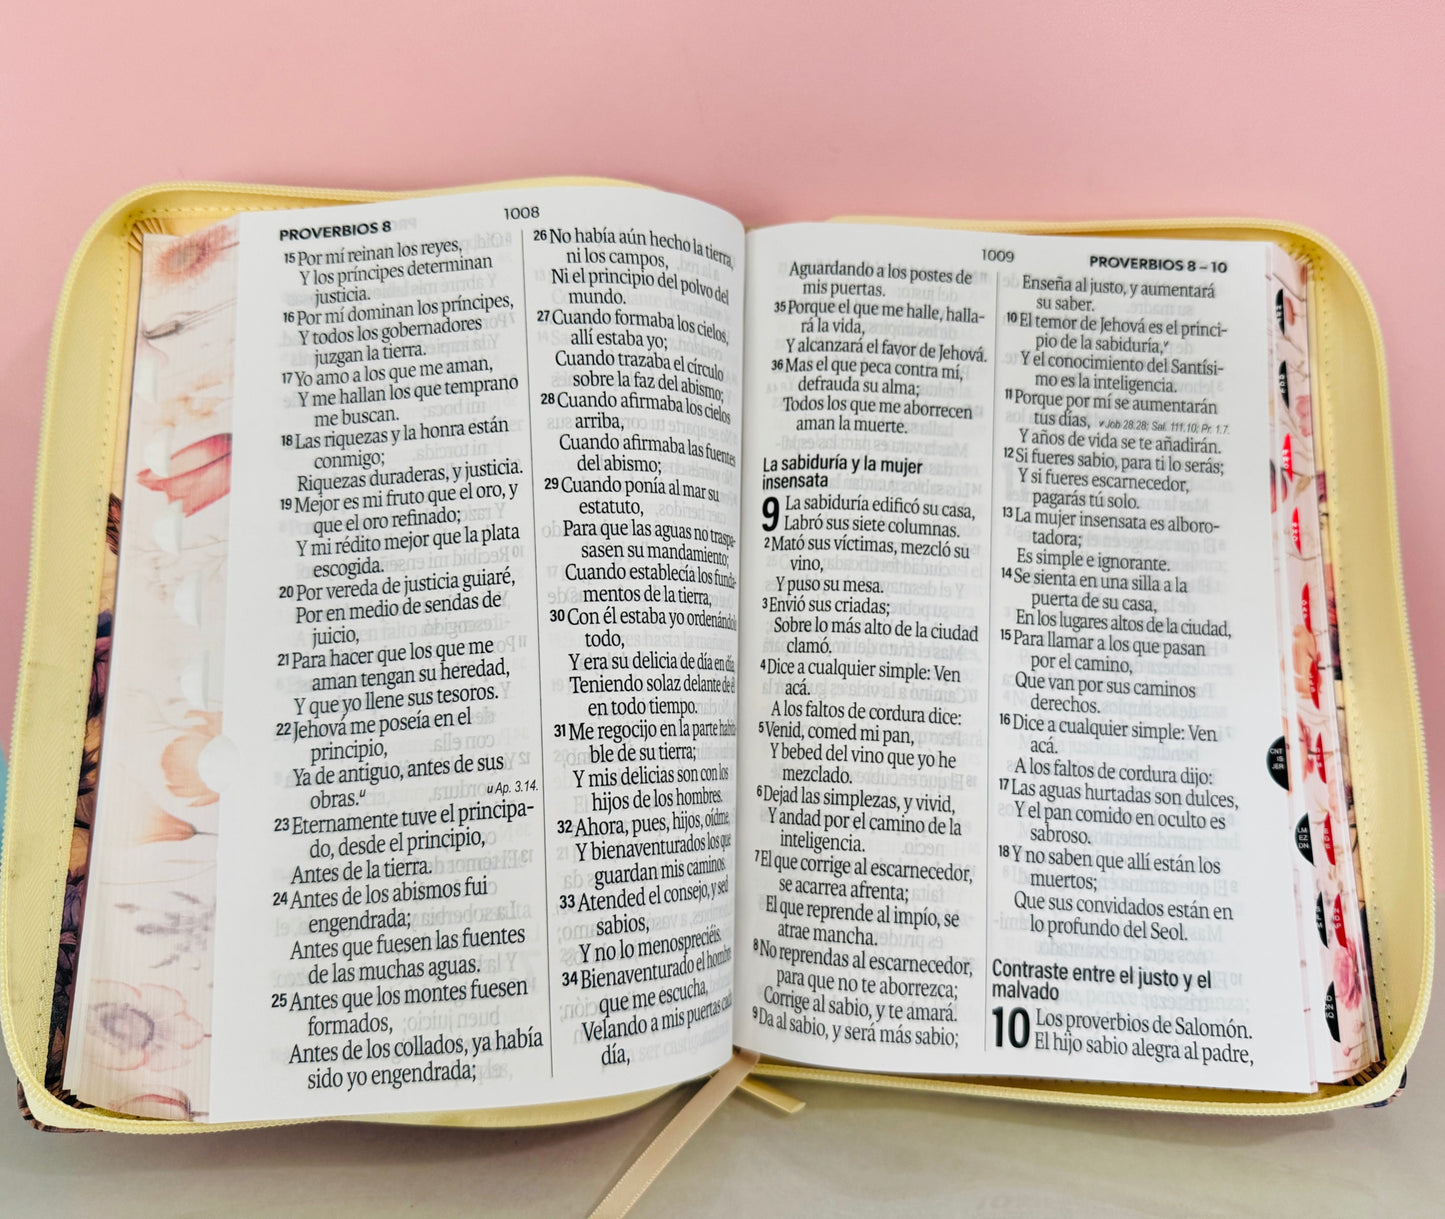 PROVERBIOS 8
1008
15 Por mí reinan los reyes,
Y los príncipes determinan
justicia.
16 Por mí dominan los príncipes,
Y todos los gobernadores
juzgan la tierra.
17 Yo amo a los que me aman,
Y me hallan los que temprano
me buscan.
18 Las riquezas y la honra están
conmigo;
Riquezas duraderas, y justicia.
19 Mejor es mi fruto que el oro, y
que el oro refinado;
Y mi rédito mejor que la plata
escogida.
20 Por vereda de justicia guiaré,
Por en medio de sendas de
juicio,
21 Para hacer que los que me
aman tengan su heredad,
Y que yo llene sus tesoros.
22 Jehová me poseía en el
principio,
Ya de antiguo, antes de sus
obras.u u Ap. 3.14.
23 Eternamente tuve el principa-
do, desde el principio,
Antes de la tierra.
24 Antes de los abismos fui
engendrada;
Antes que fuesen las fuentes
de las muchas aguas.
25 Antes que los montes fuesen
formados,
Antes de los collados, ya había
sido yo engendrada;
26 No había aún hecho la tierra,
ni los campos,
Ni el principio del polvo del
mundo.
27 Cuando formaba los cielos,
allí estaba yo;
Cuando trazaba el círculo
sobre la faz del abismo;
28 Cuando afirmaba los cielos
arriba,
Cuando afirmaba las fuentes
del abismo;
29 Cuando ponía al mar su
estatuto,
Para que las aguas no traspa-
sasen su mandamiento;
Cuando establecía los funda-
mentos de la tierra,
30 Con él estaba yo ordenándolo
todo,
Y era su delicia de día en día,
Teniendo solaz delante de él
en todo tiempo.
31 Me regocijo en la parte habita-
ble de su tierra;
Y mis delicias son con los
hijos de los hombres.
32 Ahora, pues, hijos, oídme,
Y bienaventurados los que
guardan mis caminos.
33 Atended el consejo, y sed
sabios,
Y no lo menospreciéis.
34 Bienaventurado el hombre
que me escucha,
Velando a mis puertas cada
día,
1009
PROVERBIOS 8 – 10
Aguardando a los postes de
mis puertas.
35 Porque el que me halle, halla-
rá la vida,
Y alcanzará el favor de Jehová.
36 Mas el que peca contra mí,
defrauda su alma;
Todos los que me aborrecen
aman la muerte.
La sabiduría y la mujer
insensata
9 La sabiduría edificó su casa,
Labró sus siete columnas.
2 Mató sus víctimas, mezcló su
vino,
Y puso su mesa.
3 Envió sus criadas;
Sobre lo más alto de la ciudad
clamó.
4 Dice a cualquier simple: Ven
acá.
A los faltos de cordura dice:
5 Venid, comed mi pan,
Y bebed del vino que yo he
mezclado.
6 Dejad las simplezas, y vivid,
Y andad por el camino de la
inteligencia.
7 El que corrige al escarnecedor,
se acarrea afrenta;
El que reprende al impío, se
atrae mancha.
8 No reprendas al escarnecedor,
para que no te aborrezca;
Corrige al sabio, y te amará.
9 Da al sabio, y será más sabio;
Enseña al justo, y aumentará
su saber.
10 El temor de Jehová es el princi-
pio de la sabiduría,v
Y el conocimiento del Santísi-
mo es la inteligencia.
11 Porque por mí se aumentarán
tus días, v Job 28:28; Sal. 111.10; Pr. 1.7.
Y años de vida se te añadirán.
12 Si fueres sabio, para ti lo serás;
Y si fueres escarnecedor,
pagarás tú solo.
13 La mujer insensata es alboro-
tadora;
Es simple e ignorante.
14 Se sienta en una silla a la
puerta de su casa,
En los lugares altos de la ciudad,
15 Para llamar a los que pasan
por el camino,
Que van por sus caminos
derechos.
16 Dice a cualquier simple: Ven
acá.
A los faltos de cordura dijo:
17 Las aguas hurtadas son dulces,
Y el pan comido en oculto es
sabroso.
18 Y no saben que allí están los
muertos;
Que sus convidados están en
lo profundo del Seol.
Contraste entre el justo y el
malvado
10 Los proverbios de Salomón.
El hijo sabio alegra al padre,
CNT
IS
JER
LM
EZ
DN